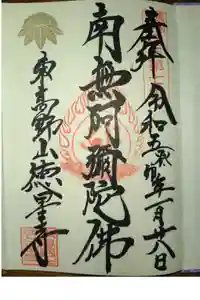 奉拝 令和五 卯年一月廿八日
南無阿彌陀佛
東高野山徳星寺